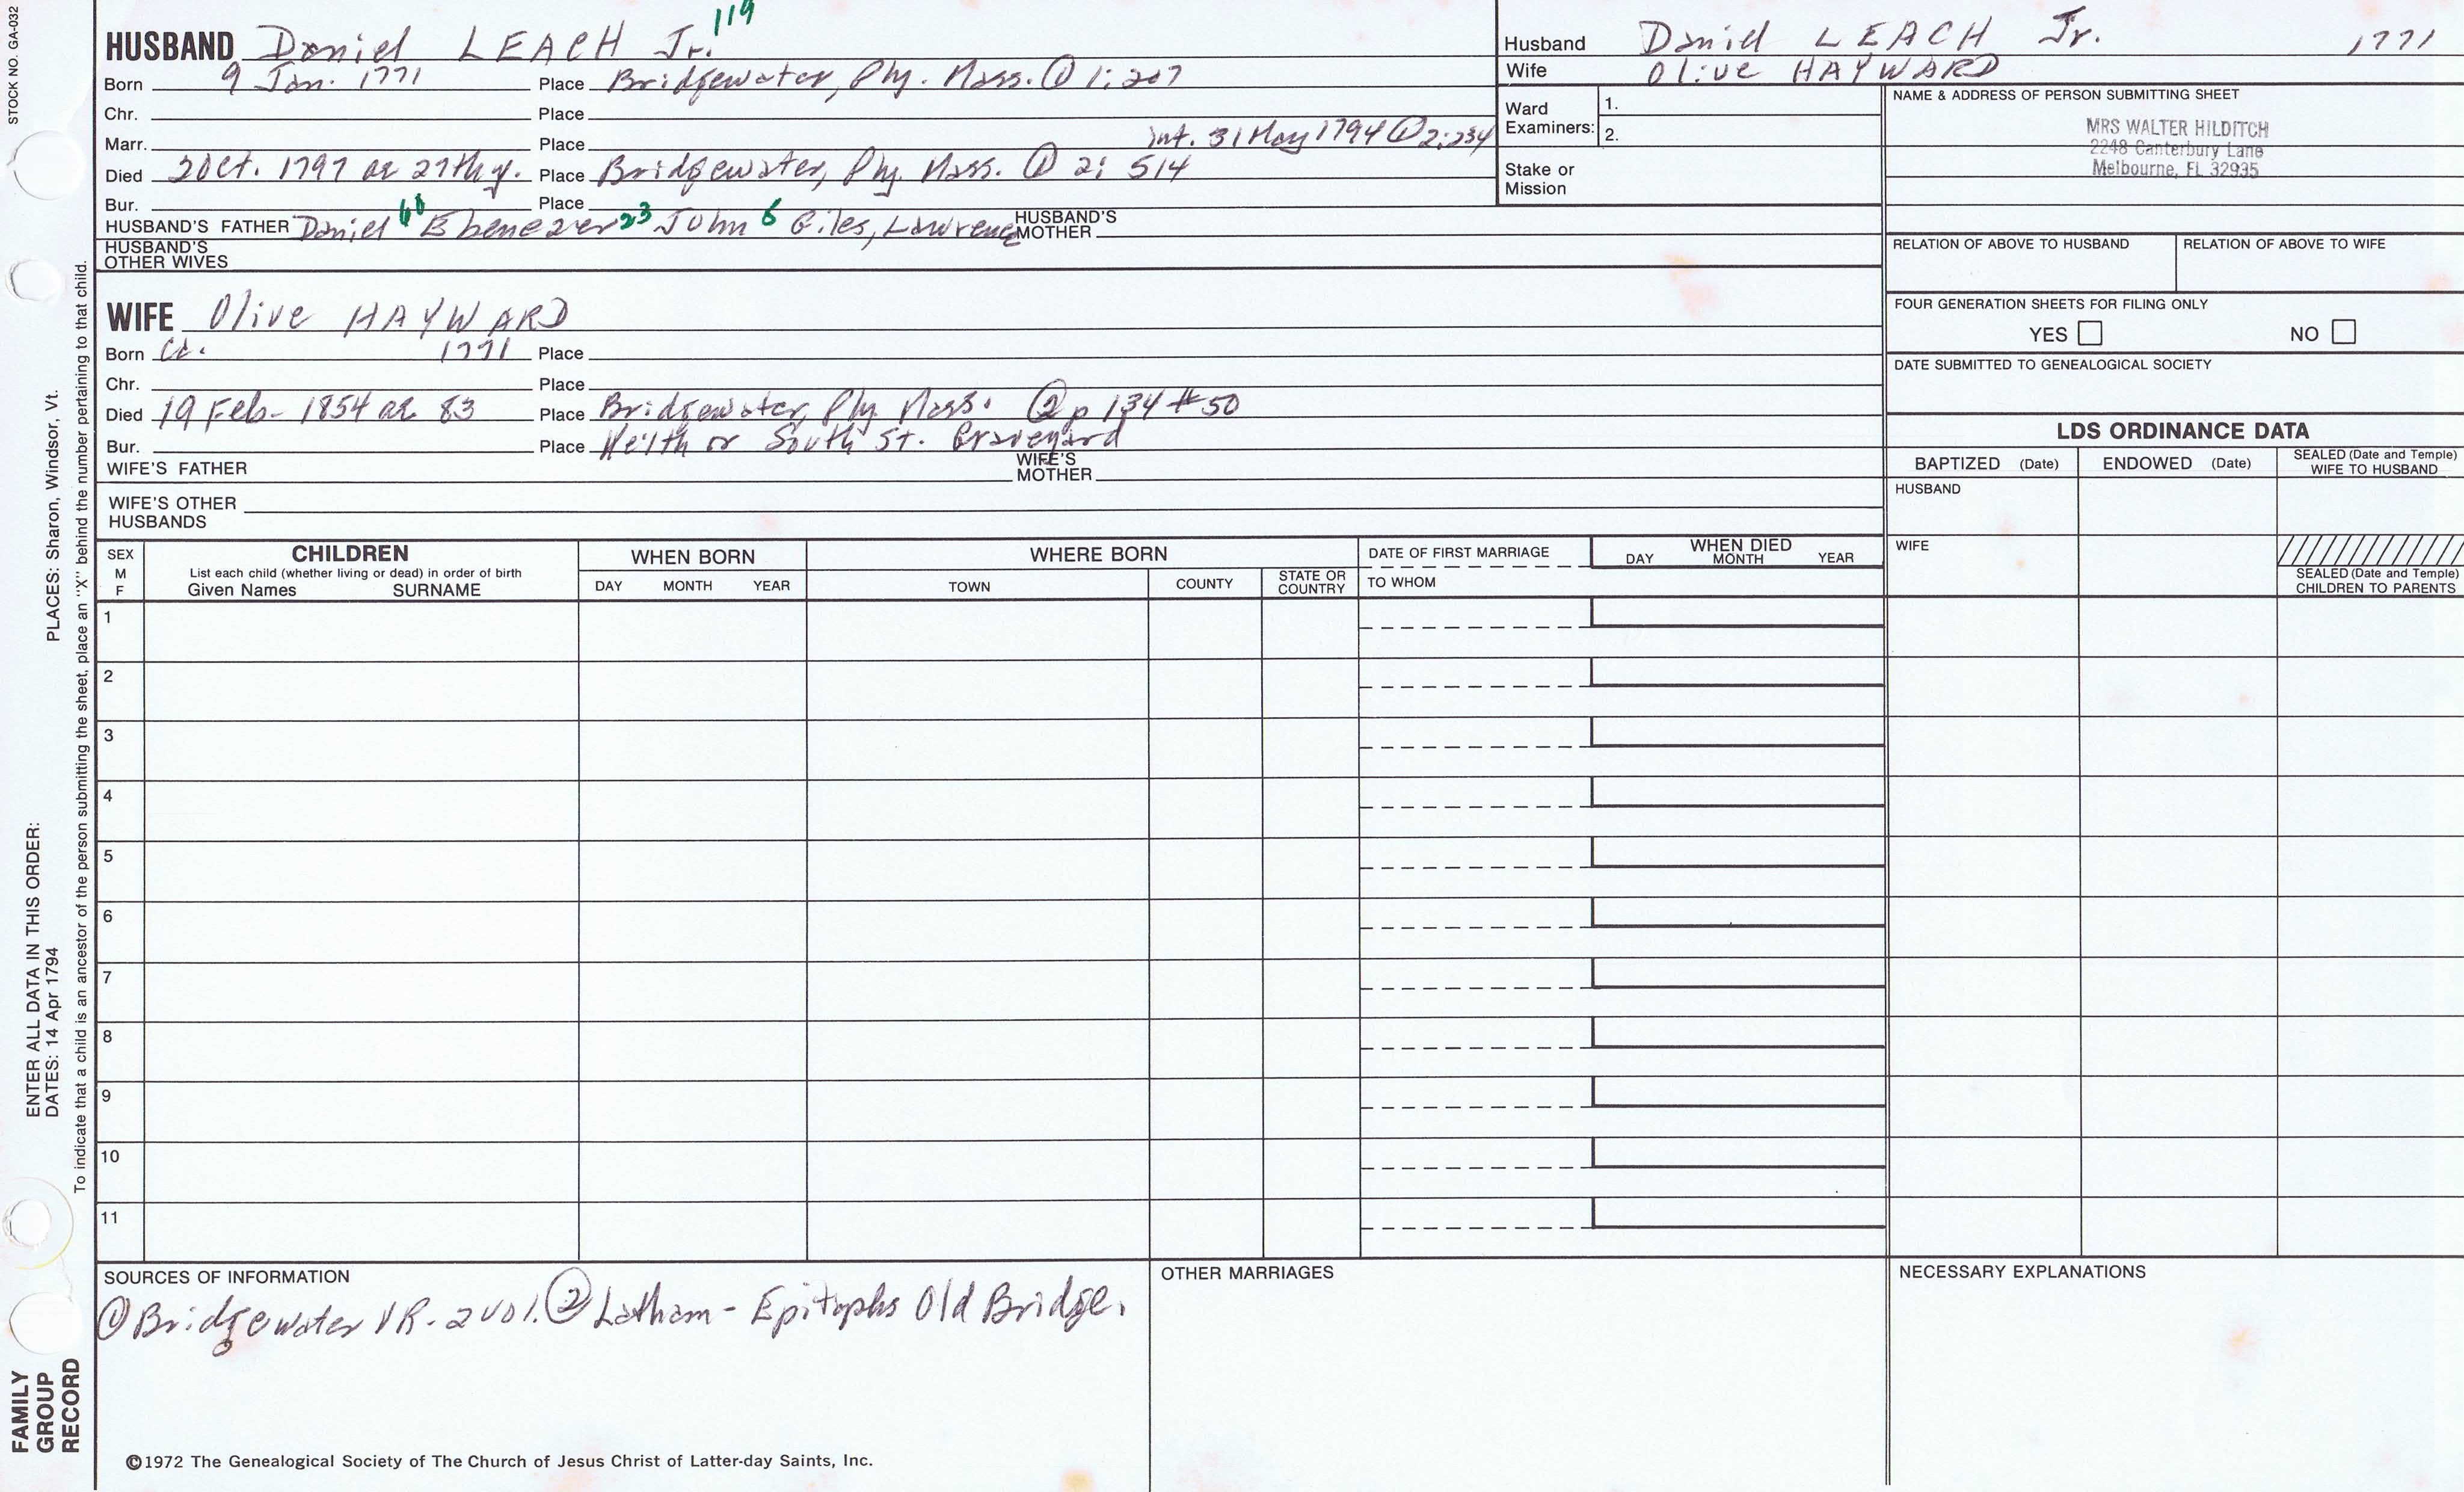 STOCK NO. GA-032
HUSBAND Daniel LEACH Jr. 119
Born 9 Jan. 1771 Place Bridgewater, Ply. Mass. ① 1:207
Chr. Place
Marr. Place Int. 31 May 1794 ① 2:234
Died 2 Oct. 1797 ae 27th y. Place Bridgewater, Ply. Mass. ① 2: 514
Bur. Place
HUSBAND'S FATHER Daniel Ebenezer 23 John 6 Giles, Lawrence HUSBAND'S MOTHER
HUSBAND'S OTHER WIVES
WIFE Olive HAYWARD
Born Ca. 1771 Place
Chr. Place
Died 19 Feb- 1854 ae 83 Place Bridgewater, Ply Mass. ② p 134 #50
Bur. Place Keith or South St. Graveyard
WIFE'S FATHER WIFE'S MOTHER
WIFE'S OTHER HUSBANDS
Husband Daniel LEACH Jr. 1771
Wife Olive HAYWARD
Ward Examiners: 1.
2.
Stake or Mission
NAME & ADDRESS OF PERSON SUBMITTING SHEET
MRS WALTER HILDITCH
2248 Canterbury Lane
Melbourne, FL 32935
RELATION OF ABOVE TO HUSBAND RELATION OF ABOVE TO WIFE
FOUR GENERATION SHEETS FOR FILING ONLY
YES NO
DATE SUBMITTED TO GENEALOGICAL SOCIETY
LDS ORDINANCE DATA
BAPTIZED (Date) ENDOWED (Date) SEALED (Date and Temple) WIFE TO HUSBAND
HUSBAND
WIFE
SEALED (Date and Temple) CHILDREN TO PARENTS
SEX M F
CHILDREN
List each child (whether living or dead) in order of birth
Given Names SURNAME
WHEN BORN
DAY MONTH YEAR
WHERE BORN
TOWN COUNTY STATE OR COUNTRY
DATE OF FIRST MARRIAGE
TO WHOM
WHEN DIED
DAY MONTH YEAR
1
2
3
4
5
6
7
8
9
10
11
SOURCES OF INFORMATION
① Bridgewater VR - 2 vol. ② Latham - Epitaphs Old Bridge.
OTHER MARRIAGES
NECESSARY EXPLANATIONS
©1972 The Genealogical Society of The Church of Jesus Christ of Latter-day Saints, Inc.
FAMILY GROUP RECORD
ENTER ALL DATA IN THIS ORDER:
DATES: 14 Apr 1794 PLACES: Sharon, Windsor, Vt.
To indicate that a child is an ancestor of the person submitting the sheet, place an "X" behind the number pertaining to that child.